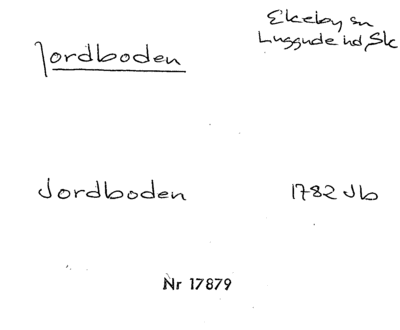 Jordboden
Ekeby sn
Luggude hd, Sk
Jordboden 1782 Jb
Nr 17879